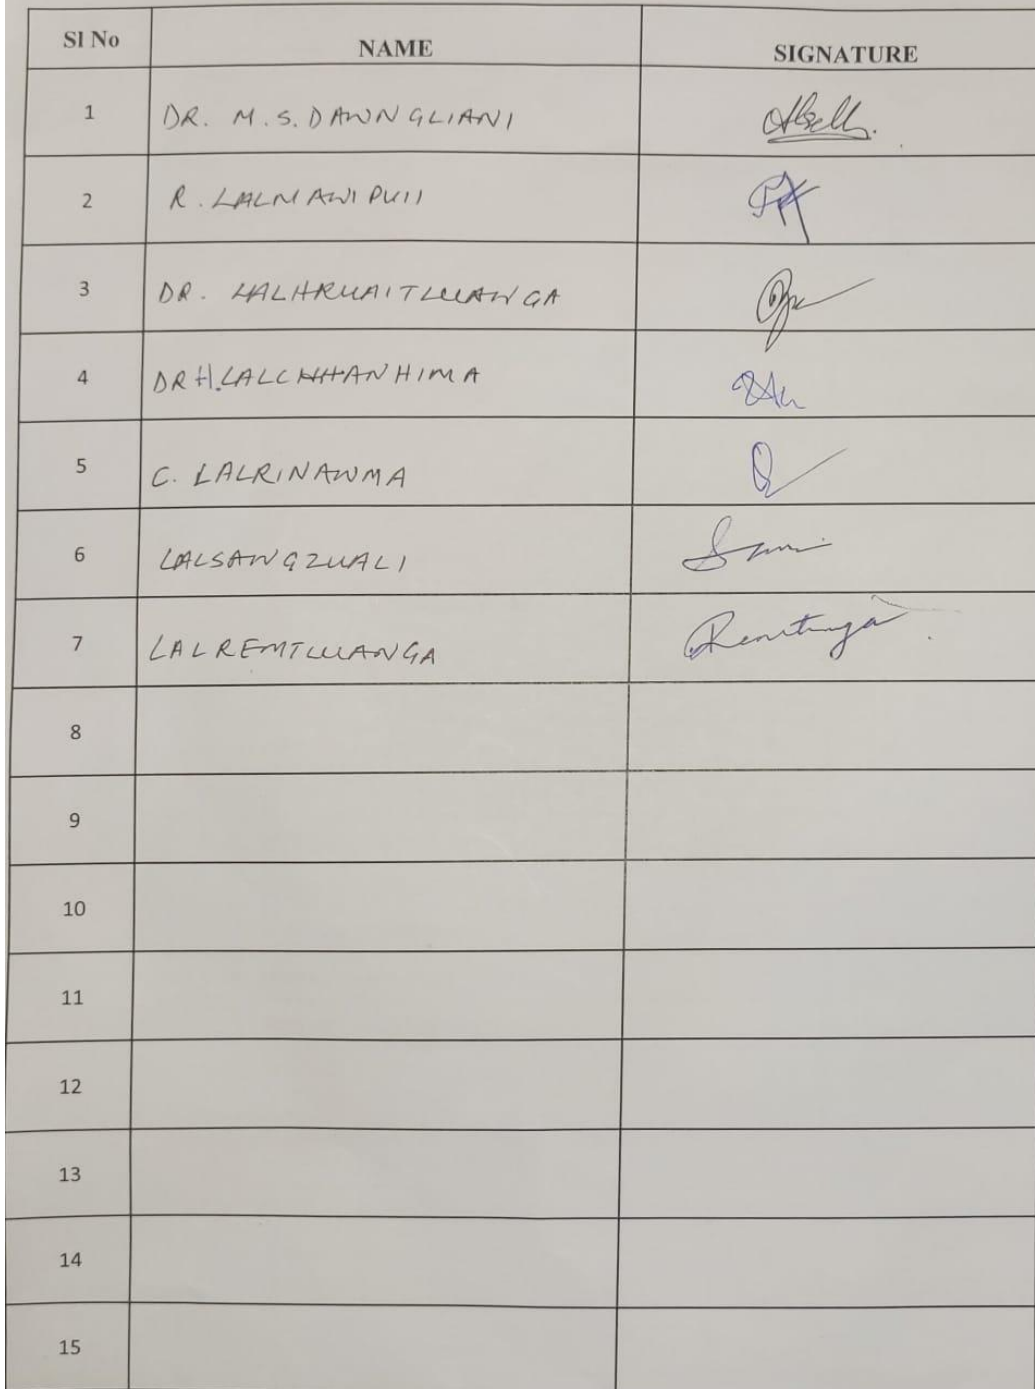 Sl No NAME SIGNATURE
1 DR. M.S. DAWNGLIANI
2 R. LALMAWIPUII
3 DR. LALHRUAITLUANGA
4 DR H. LALCHHANHIMA
5 C. LALRINAWMA
6 LALSANGZUALI
7 LALREMTLUANGA Remtluanga
8
9
10
11
12
13
14
15